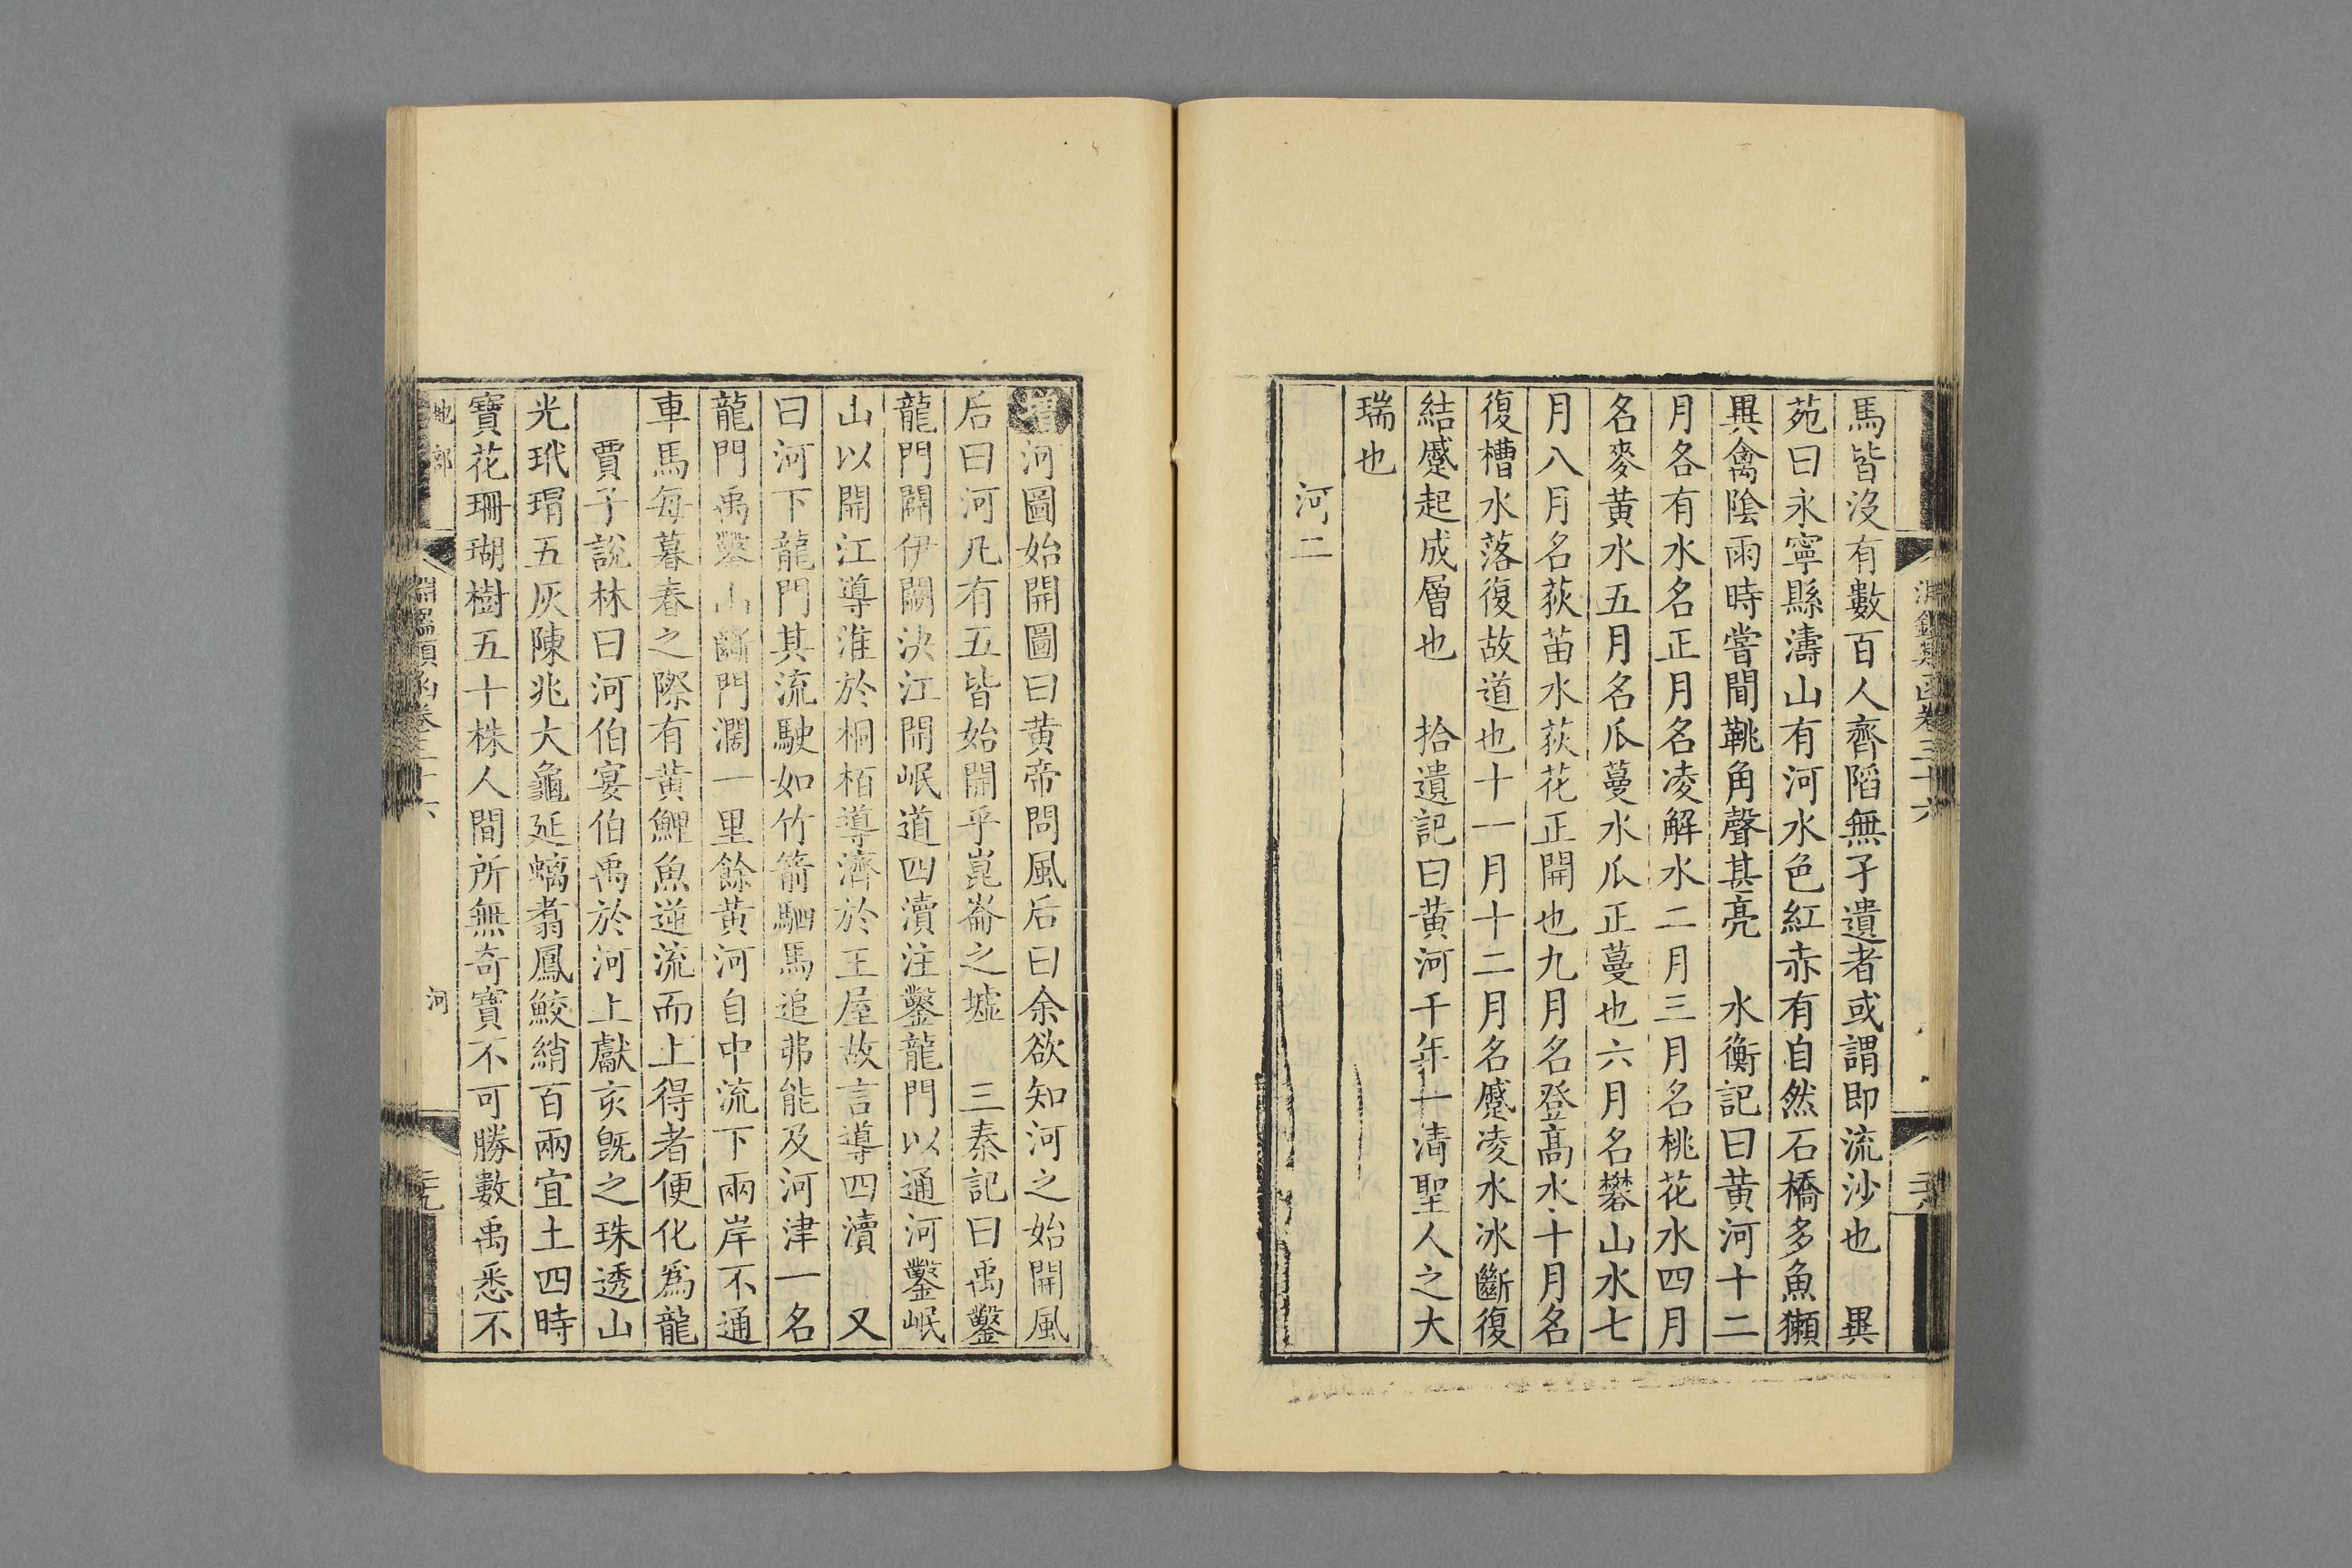 淵鑑類函卷三十六
馬皆没有數百人齊陷無孑遺者或謂即流沙也　異
苑曰永寧縣濤山有河水色紅赤有自然石橋多魚獺
異禽陰雨時嘗聞鞉角聲甚亮　水衡記曰黃河十二
月各有水名正月名凌解水二月三月名桃花水四月
名麥黃水五月名瓜蔓水瓜正蔓也六月名礬山水七
月八月名荻苗水荻花正開也九月名登高水十月名
復槽水落復故道也十一月十二月名蹙凌水冰斷復
結蹙起成層也　拾遺記曰黃河千年一清聖人之大
瑞也
河二
河圖始開圖曰黃帝問風后曰余欲知河之始開風
后曰河凡有五皆始開乎崑崙之墟　三秦記曰禹鑿
龍門闢伊闕決江開岷道四瀆注鑿龍門以通河鑿岷
山以開江導淮於桐栢導濟於王屋故言導四瀆　又
曰河下龍門其流駛如竹箭駟馬追弗能及河津一名
龍門禹鑿山斷門濶一里餘黃河自中流下兩岸不通
車馬每暮春之際有黃鯉魚逆流而上得者便化爲龍
賈子說林曰河伯宴伯禹於河上獻亥旣之珠透山
光玳瑁五灰陳兆大龜延螭翥鳳鮫綃百兩宜土四時
寶花珊瑚樹五十株人間所無奇寶不可勝數禹悉不
地部
淵鑑類函卷三十六
河